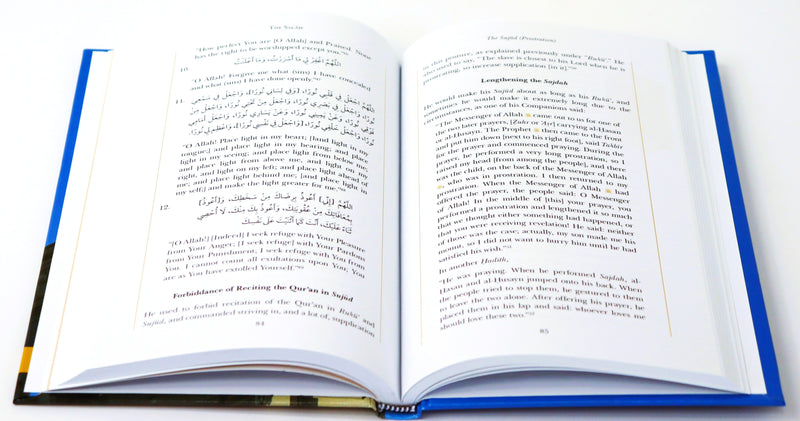 The Salāh
"How perfect You are [O Allah] and Praised. None
has the right to be worshipped except you."
10.
اللَّهُمَّ اغْفِرْ لِي مَا أَسْرَرْتُ، وَمَا أَعْلَنْتُ
"O Allah! Forgive me what (sin) I have concealed
and what (sin) I have done openly."
11.
اللَّهُمَّ اجْعَلْ فِي قَلْبِي نُورًا، [وَفِي لِسَانِي نُورًا]، وَاجْعَلْ فِي سَمْعِي
نُورًا، وَاجْعَلْ فِي بَصَرِي نُورًا، وَاجْعَلْ مِنْ تَحْتِي نُورًا، وَاجْعَلْ
"O Allah! Place light in my heart; [and light in my
tongue;] and place light in my hearing; and place
light in my seeing; and place light from below me;
and place light from above me, and light on my
right, and light on my left; and place light ahead of
me; and place light behind me; [and place light in
my self;] and make the light greater for me."
12.
اللَّهُمَّ [إِنِّي] أَعُوذُ بِرِضَاكَ مِنْ سَخَطِكَ، وَ[أَعُوذُ]
بِمُعَافَاتِكَ مِنْ عُقُوبَتِكَ، وَأَعُوذُ بِكَ مِنْكَ، لَا أُحْصِي
ثَنَاءً عَلَيْكَ، أَنْتَ كَمَا أَثْنَيْتَ عَلَى نَفْسِكَ
"[O Allah!] [Indeed] I seek refuge with Your Pleasure
from Your Anger; [I seek refuge] with Your Pardon
from Your Punishment; I seek refuge with You from
You. I cannot count all exultations upon You; You
are as You have extolled Yourself."
Forbiddance of Reciting the Qur'an in Sujūd
He used to forbid recitation of the Qur'an in Rukū' and
Sujūd, and commanded striving in, and a lot of, supplication
84
The Sujūd (Prostration)
in this posture, as explained previously under "Rukū'." He
also used to say, "The slave is closest to his Lord when he is
prostrating, so increase supplication [in it]."
Lengthening the Sajdah
He would make his Sujūd about as long as his Rukū', and
sometimes he would make it extremely long due to the
circumstances, as one of his Companions said:
"The Messenger of Allah came out to us for one of
the two later prayers, [Zuhr or 'Asr] carrying al-Hasan
or al-Husayn. The Prophet then came to the front
and put him down [next to his right foot], said Takbīr
for the prayer and commenced praying. During the
prayer, he performed a very long prostration, so I
raised my head [from among the people], and there
was the child, on the back of the Messenger of Allah
who was in prostration. I then returned to my
prostration. When the Messenger of Allah had
offered the prayer, the people said: O Messenger
of Allah! In the middle of [this] your prayer, you
performed a prostration and lengthened it so much
that we thought either something had happened, or
that you were receiving revelation! He said: neither
of those was the case; actually, my son made me his
mount, so I did not want to hurry him until he had
satisfied his wish."
In another Hadīth,
"He was praying. When he performed Sajdah, al-
Hasan and al-Husayn jumped onto his back. When
the people tried to stop them, he gestured to them
to leave the two alone. After offering his prayer, he
placed them in his lap and said: whoever loves me
should love these two."
85